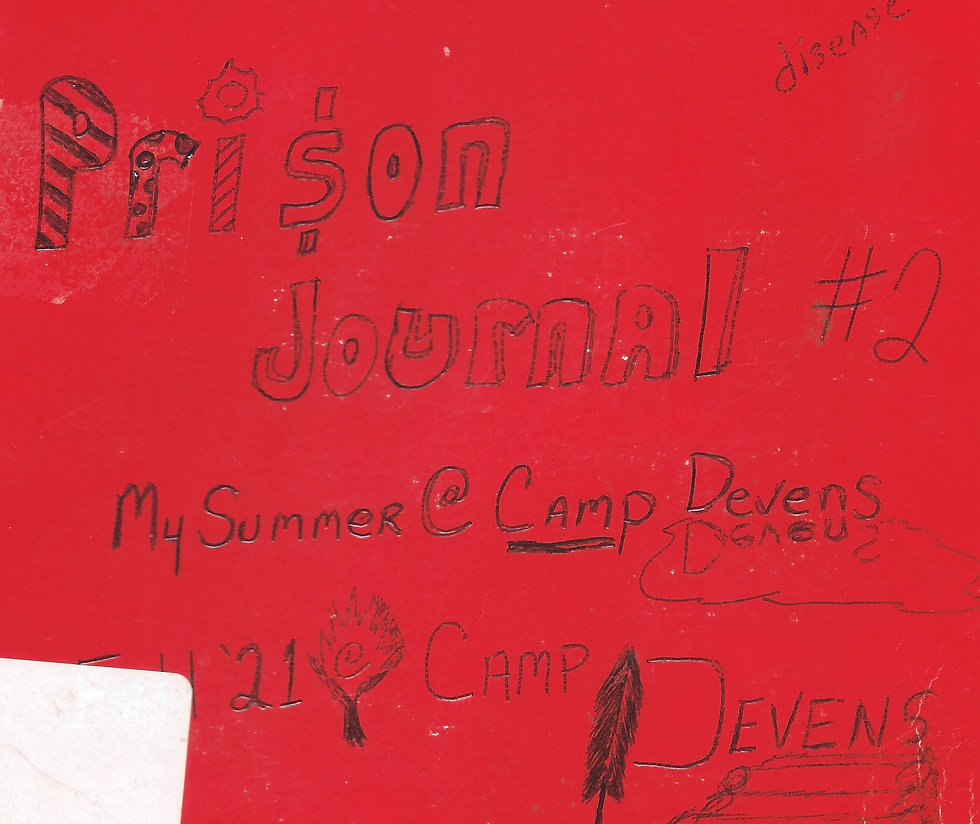 disease
Prison
Journal #2
My Summer @ Camp Devens
Devens
'21 @ CAMP DEVENS